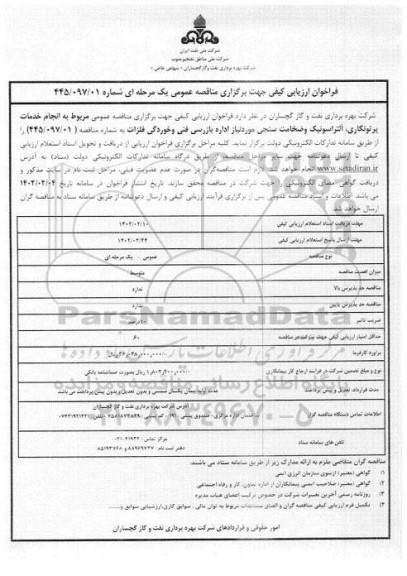 شرکت ملی نفت ایران
شرکت ملی مناطق نفتخیز جنوب
شرکت بهره برداری نفت و گاز گچساران - سهامی خاص -
فراخوان ارزیابی کیفی جهت برگزاری مناقصه عمومی یک مرحله ای شماره ۴۴۵/۰۹۷/۰۱
شرکت بهره برداری نفت و گاز گچساران در نظر دارد فراخوان ارزیابی کیفی جهت برگزاری مناقصه عمومی مربوط به انجام خدمات
پرتونگاری، التراسونیک وضخامت سنجی موردنیاز اداره بازرسی فنی وخوردگی فلزات به شماره مناقصه (۴۴۵/۰۹۷/۰۱) را
از طریق سامانه تدارکات الکترونیکی دولت برگزار نماید. کلیه مراحل برگزاری فراخوان ارزیابی از دریافت و تحویل اسناد استعلام ارزیابی
کیفی تا ارسال دعوتنامه جهت سایر مراحل مناقصه، از طریق درگاه سامانه تدارکات الکترونیکی دولت (ستاد) به آدرس
www.setadiran.ir انجام خواهد شد. لازم است مناقصه گران در صورت عدم عضویت قبلی، مراحل ثبت نام در سایت مذکور و
دریافت گواهی امضای الکترونیکی را جهت شرکت در مناقصه محقق سازند. تاریخ انتشار فراخوان در سامانه تاریخ ۱۴۰۲/۰۲/۰۴
می باشد. اطلاعات و اسناد مناقصه عمومی پس از برگزاری فرآیند ارزیابی کیفی و ارسال دعوتنامه از طریق سامانه ستاد به مناقصه گران
ارسال خواهد شد.
مهلت دریافت اسناد استعلام ارزیابی کیفی ۱۴۰۲/۰۲/۱۰
مهلت ارسال پاسخ استعلام ارزیابی کیفی ۱۴۰۲/۰۲/۲۴
نوع مناقصه عمومی - یک مرحله ای
میزان اهمیت مناقصه متوسط
مناقصه حد پذیرش بالا ندارد
مناقصه حد پذیرش پایین ندارد
ضریب تاثیر
حداقل امتیاز ارزیابی کیفی جهت شرکت در مناقصه ۶۰
برآورد کارفرما
نوع و مبلغ تضمین شرکت در فرآیند ارجاع کار ریال بصورت ضمانتنامه بانکی
مدت قرارداد، تعدیل و پیش پرداخت
اطلاعات تماس دستگاه مناقصه گزار آدرس شرکت بهره برداری نفت و گاز گچساران
تلفن های سامانه ستاد مرکز تماس: ۴۱۹۳۴-۰۲۱
دفتر ثبت نام: ۸۸۹۶۹۷۳۷ و ۸۵۱۹۳۷۶۸
ParsNamadData
پایگاه اطلاع رسانی مناقصه و مزایده
۰۲۱-۸۸۳۴۹۶۷۰-۵
مناقصه گران متقاضی ملزم به ارائه مدارک زیر از طریق سامانه ستاد می باشند:
۱) گواهی (معتبر) ازسوی سازمان انرژی اتمی
۲) گواهی (معتبر) صلاحیت ایمنی پیمانکاران از اداره تعاون، کار و رفاه اجتماعی
۳) روزنامه رسمی آخرین تغییرات شرکت در خصوص ترکیب اعضای هیات مدیره
۴) تکمیل فرم ارزیابی کیفی مناقصه گران و الصاق مستندات مربوط به توان مالی، سوابق کاری، ارزشیابی سوابق و......
امور حقوقی و قراردادهای شرکت بهره برداری نفت و گاز گچساران